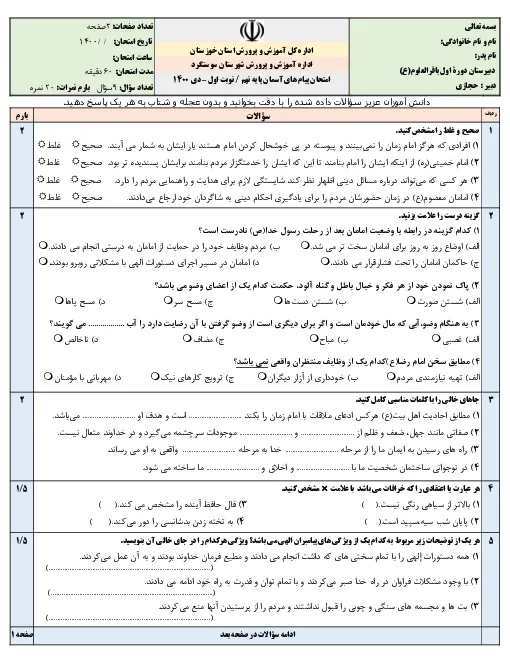 بسمه تعالی
نام و نام خانوادگی:
نام پدر:
دبیرستان دورهٔ اول باقرالعلوم(ع)
دبیر : حجازی
اداره کل آموزش و پرورش استان خوزستان
اداره آموزش و پرورش شهرستان سوسنگرد
امتحان پیام های آسمان پایه نهم / نوبت اول - دی ۱۴۰۰
تعداد صفحات: ۲صفحه
تاریخ امتحان: / / ۱۴۰۰
ساعت امتحان:
مدت امتحان: ۶۰ دقیقه
تعداد سؤال: ۹سؤال بارم نمرات: ۲۰ نمره
دانش آموزان عزیز سؤالات داده شده را با دقت بخوانید و بدون عجله و شتاب به هر یک پاسخ دهید.
ردیف سؤالات بارم
۱ صحیح و غلط را مشخص کنید. ۲
۱) افرادی که هرگز امام زمان را نمی‌بینند و پیوسته در پی خوشحال کردن امام هستند یار ایشان به شمار می آیند. صحیح غلط
۲) امام خمینی(ره) از اینکه ایشان را امام بنامند تا این که ایشان را خدمتگزار مردم بنامند برایشان پسندیده تر بود. صحیح غلط
۳) هر کسی که می‌تواند درباره مسائل دینی اظهار نظر کند شایستگی لازم برای هدایت و راهنمایی مردم را دارد. صحیح غلط
۴) امامان معصوم(ع) در زمان حضورشان مردم را برای یادگیری احکام دینی به شاگردان خود ارجاع می‌دادند. صحیح غلط
۲ گزینه درست را علامت بزنید. ۲
۱) کدام گزینه در رابطه با وضعیت امامان بعد از رحلت رسول خدا(ص) نادرست است؟
الف) اوضاع روز به روز برای امامان سخت تر می شد. ب) مردم وظایف خود را در حمایت از امامان به درستی انجام می دادند.
ج) حاکمان امامان را تحت فشار قرار می دادند. د) امامان در مسیر اجرای دستورات الهی با مشکلاتی روبرو بودند.
۲) پاک نمودن خود از هر فکر و خیال باطل و گناه آلود، حکمت کدام یک از اعضای وضو می باشد؟
الف) شستن صورت ب) شستن دست ها ج) مسح سر د) مسح پاها
۳) به هنگام وضو، آبی که مال خودمان است و اگر برای دیگری است از وضو گرفتن با آن رضایت دارد را آب .................. می گویند؟
الف) غصبی ب) مباح ج) مضاف د) ناخالص
۴) مطابق سخن امام رضا(ع)کدام یک از وظایف منتظران واقعی نمی باشد؟
الف) تهیه نیازمندی مردم ب) خودداری از آزار دیگران ج) ترویج کارهای نیک د) مهربانی با مؤمنان
۳ جاهای خالی را با کلمات مناسبی کامل کنید. ۲
۱) مطابق احادیث اهل بیت(ع) هر کس ادعای ملاقات با امام زمان را بکند ...................... است و هدف او ...................... می‌باشد.
۲) صفاتی مانند جهل، ضعف و ظلم از ...................... و ...................... موجودات سرچشمه می گیرد و در خداوند متعال نیست.
۳) راه های رسیدن به ایمان ما را از مرحله ...................... خدا به مرحله ...................... واقعی به او می رساند.
۴) در نوجوانی ساختمان شخصیت ما با ...................... و اخلاق و ...................... ما ساخته می شود.
۴ هر عبارت یا اعتقادی را که خرافات می باشد با علامت × مشخص کنید. ۱/۵
۱) بالاتر از سیاهی رنگی نیست.( ) ۳) فال حافظ آینده را مشخص می کند.( )
۲) پایان شب سیه،سپید است( ) ۴) به تخته زدن بدشانسی را دور می‌کند.( )
۵ هر یک از توضیحات زیر مربوط به کدام یک از ویژگی های پیامبران الهی می باشد؟ ویژگی هر کدام را در جای خالی آن بنویسید. ۱/۵
۱) همه دستورات إلهی را با تمام سختی های که داشت انجام می دادند و مطیع فرمان خداوند بودند و به آن عمل می‌کردند.
(............................................................)
۲) با وجود مشکلات فراوان در راه خدا صبر می‌کردند و با تمام توان و قدرت به راه خود ادامه می دادند.
(............................................................)
۳) بت ها و مجسمه های سنگی و چوبی را قبول نداشتند و مردم را از پرستیدن آنها منع می کردند.
(............................................................)
ادامه سؤالات در صفحه بعد صفحه ۱